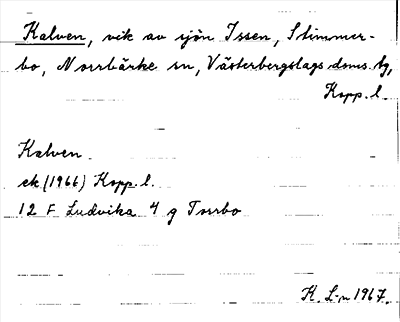 Kalven, vik av sjön Issen, Stimmer-
bo, Norrbärke sn, Västerbergslags doms. tg,
Kopp. l.
Kalven
ek (1966) Kopp. l.
12 F Ludvika 4 g Torrbo
K. L-n 1967.